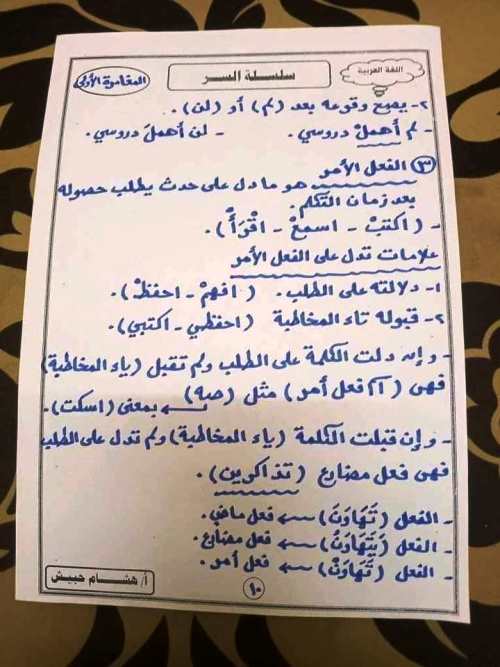 اللغة العربية
سلسلة السر
المغامرة الأولى
٢- يصح وقوعه بعد (لم) أو (لن).
- لم أهملْ دروسي. - لن أهملَ دروسي.
٣ الفعل الأمر
هو ما دل على حدث يطلب حصوله
بعد زمان التكلم.
- (اكتبْ - اسمعْ - اقْرَأْ).
علامات تدل على الفعل الأمر
١- دلالته على الطلب. (افهمْ - احفظْ).
٢- قبوله تاء المخاطبة (احفظي - اكتبي).
- وإن دلت الكلمة على الطلب ولم تقبل (ياء المخاطبة)
فهى ( فعل أمر) مثل (صه)
بمعنى (اسكت).
- وإن قبلت الكلمة (ياء المخاطبة) ولم تدل على الطلب
فهى فعل مضارع (تذاكرين).
- الفعل (تَهَاوَنَ) ← فعل ماضي.
- الفعل (يَتَهَاوَنُ) ← فعل مضارع.
- الفعل (تَهَاوَنْ) ← فعل أمر.
١٠
أ/ هشام حبيش